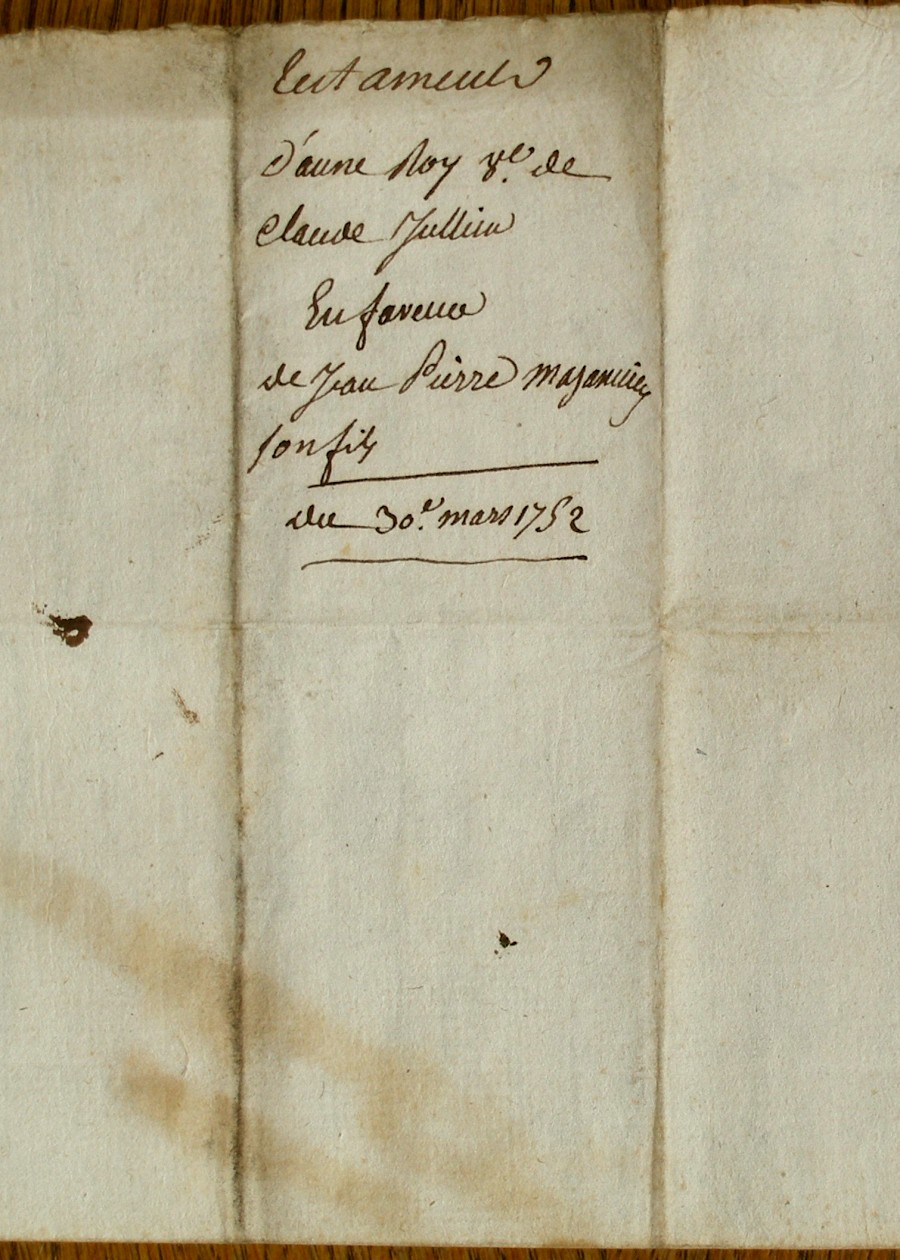 Testament
d'anne Roy vᵉ. de
Claude Jullien
En faveur
de Jean Pierre
son fils
du 30ᵉ. mars 1752